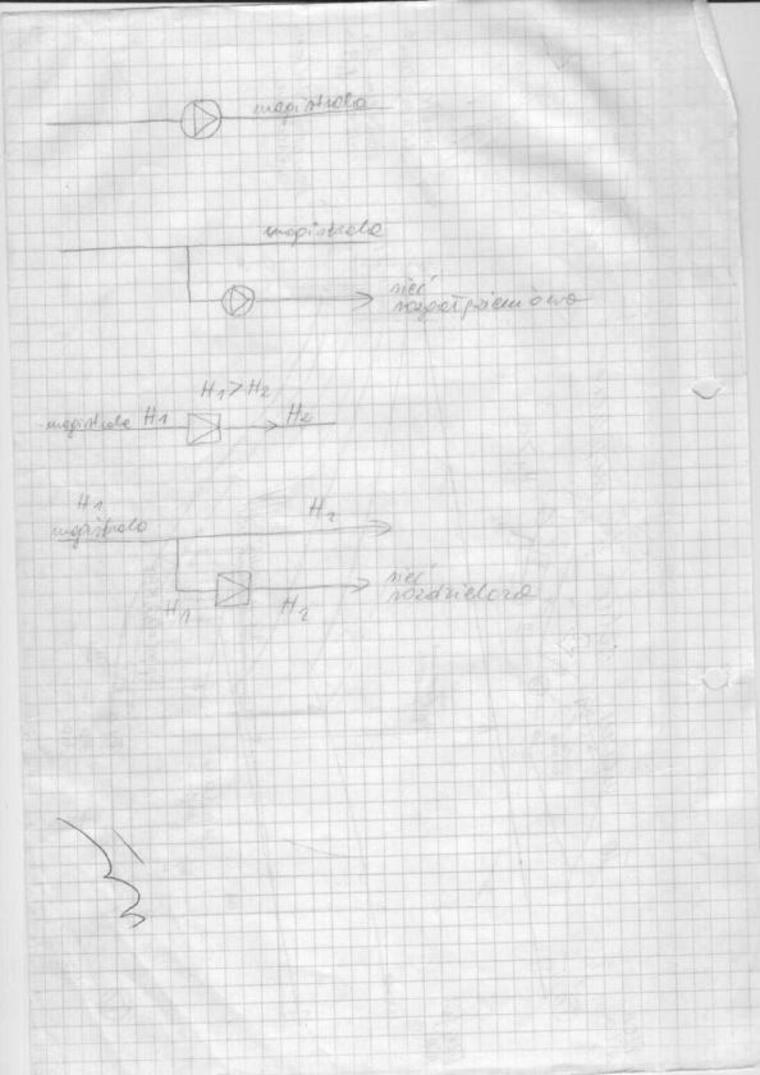 magistrala
magistrala
sieć
H₁ > H₂
magistrala H₁
H₂
H₁
magistrala
H₂
sieć
rozdzielcza
H₁
H₂